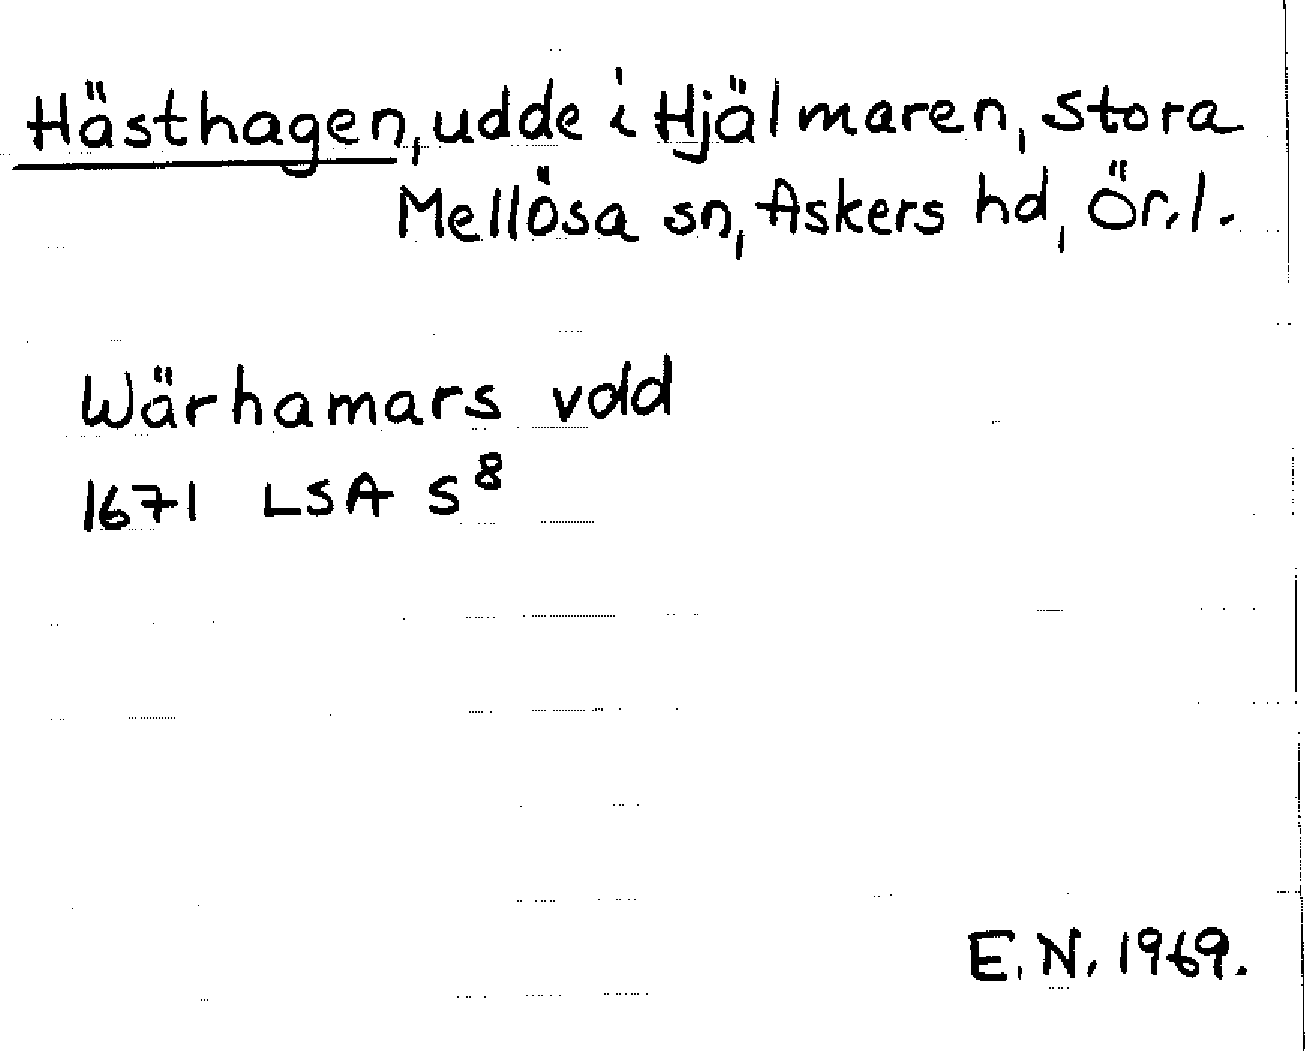 Hästhagen, udde i Hjälmaren, Stora
Mellösa sn, Askers hd, Ör.l.
Wärhamars vdd
1671 LSA S⁸
E.N. 1969.